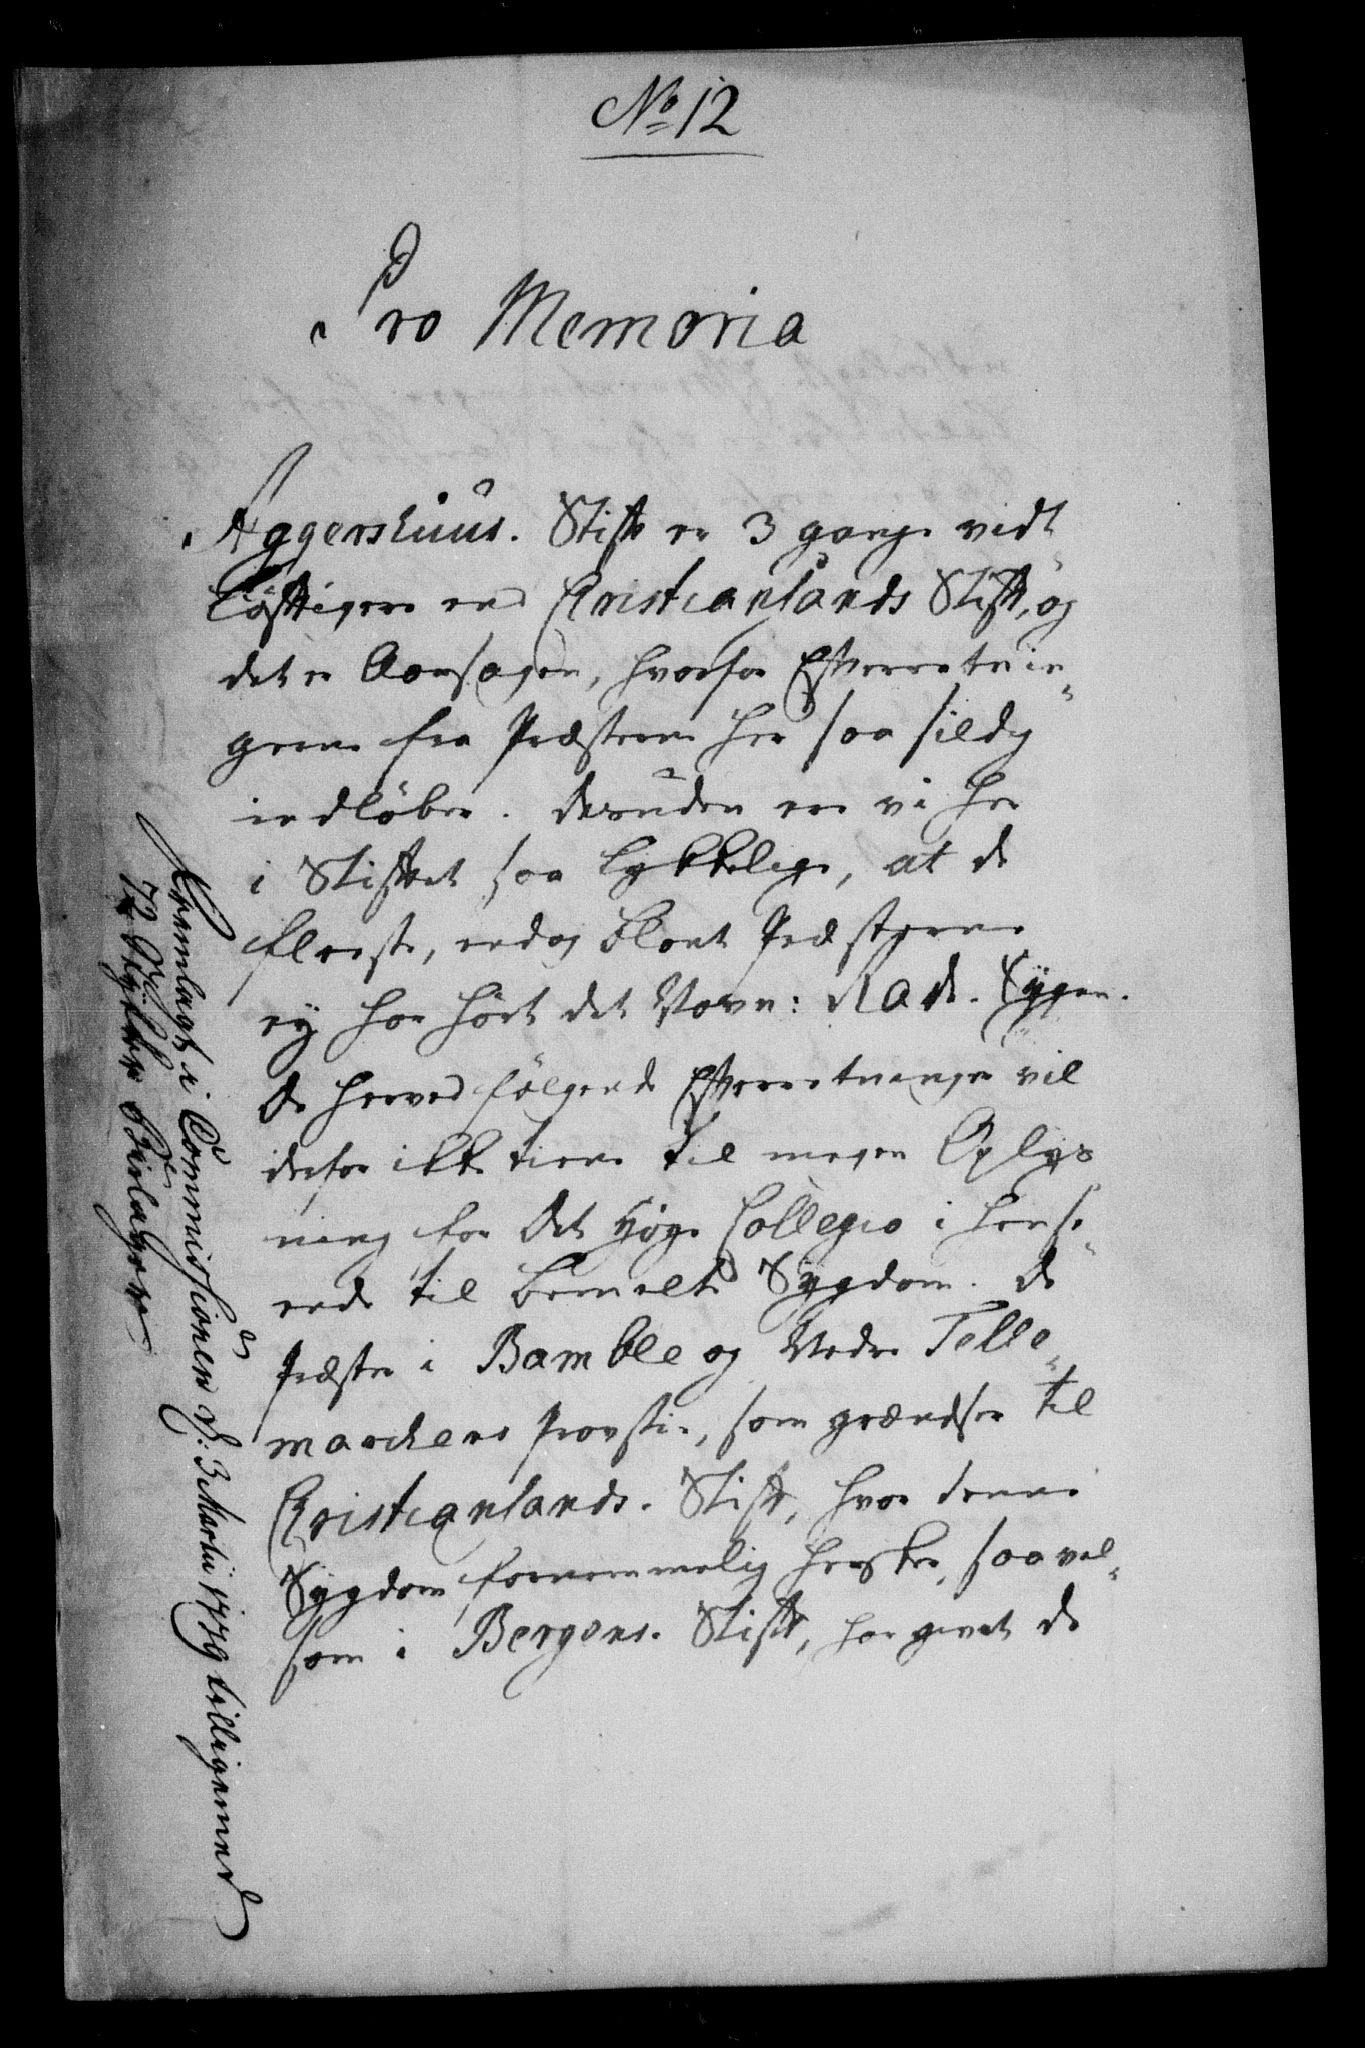 No 12
Pro Memoria
Aggershuus. Stift er 3 gange vidt
löftigere end Christiansands Stift, og
det er Aarsagen, hvorfor Efterretnin„
gerne fra Præsterne her saa sildig
indløber. desuden ere vi her
i Stiftet saa lykkelige, at de
fleeste, endog blant Præsterne
ey har hört det Navn: Rade. Sygen.
De herved følgende Efterretninger vil
derfor ikke tiene til megen Oplys
ning for Det Høye Collegio i hense„
ende til bemelte Sygdom. De
Præster i Bamble og Nedre Telle„
markens Provstie, som grændser til
Christiansands. Stift, hvor denne
Sygdom fornemmelig hersker, saavel„
som i Bergens. Stift, har givet de
Fremlagt i Commissionen d: 3 Martii 1779 tilligemed
72 Stykker Bielager